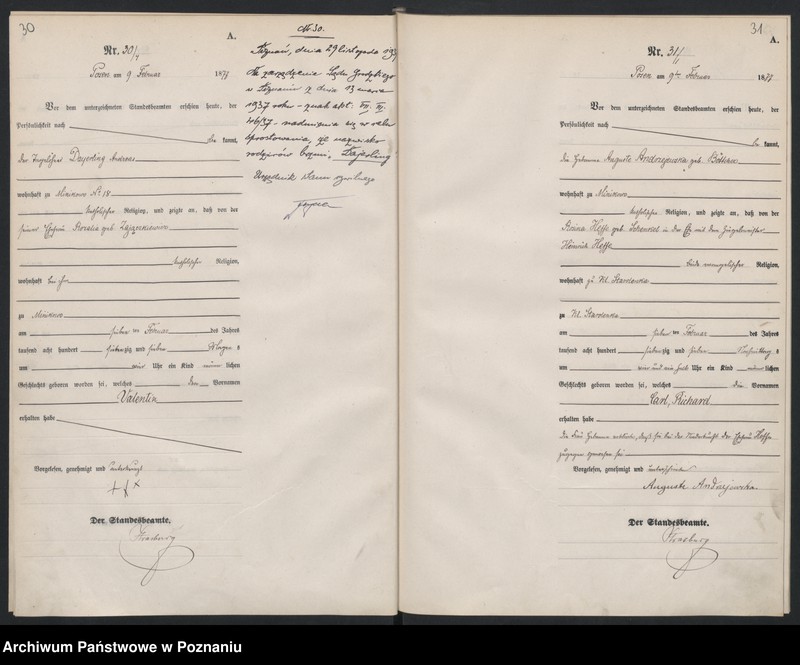 30
A.
Nr. 30
Posen am 9 Februar 1877
Vor dem unterzeichneten Standesbeamten erschien heute, der
Persönlichkeit nach
be kannt,
der Andreas
wohnhaft zu Minikowo No 18
katholischer Religion, und zeigte an, daß von der
seiner Ehefrau Rozalia geb.
katholischer Religion,
wohnhaft bei ihm
zu Minikowo
am sieben ten Februar des Jahres
tausend acht hundert siebenzig und sieben
um vier Uhr ein Kind männ lichen
Geschlechts geboren worden sei, welches den Vornamen
Valentin
erhalten habe
Vorgelesen, genehmigt und
+++
Der Standesbeamte.
Strasburg
No 30.
Poznań, dnia 29 listopada
Na zarządzenie Sądu Grodzkiego
w Poznaniu z dnia 13 marca
1937 roku
46/37 - nadmienia się w celu
sprostowania, że nazwisko
rodziców brzmi:
Urzędnik stanu cywilnego
31
A.
Nr. 31
Posen am 9ten Februar 1877
Vor dem unterzeichneten Standesbeamten erschien heute, der
Persönlichkeit nach
be kannt,
die Hebamme Auguste Andrzejewska geb.
wohnhaft zu Minikowo
katholischer Religion, und zeigte an, daß von der
Hesse geb. in der Ehe mit dem Ziegelmeister
Heinrich Hesse
beide evangelischer Religion,
wohnhaft zu Kl. Starolenka
zu Kl. Starolenka
am sieben ten Februar des Jahres
tausend acht hundert siebenzig und sieben Vormittag s
um vier und ein halb Uhr ein Kind männ lichen
Geschlechts geboren worden sei, welches die Vornamen
Carl, Richard
erhalten habe
die Frau Hebamme erklärte, daß sie bei der Niederkunft der Ehefrau Hesse
zugegen gewesen sei
Vorgelesen, genehmigt und unterschrieben
Auguste Andrzejewska.
Der Standesbeamte.
Strasburg
Archiwum Państwowe w Poznaniu